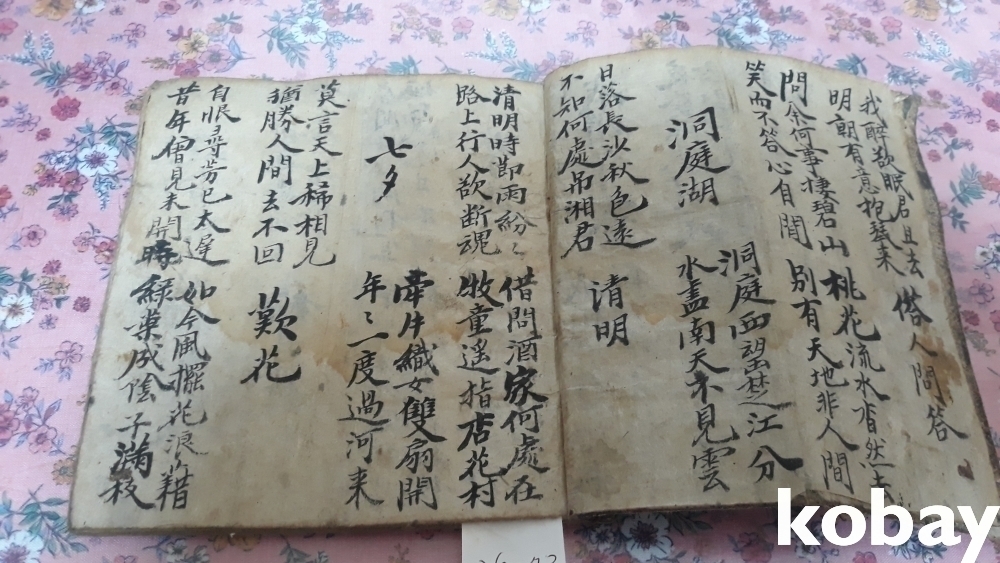 我醉欲眠君且去
明朝有意抱琴來
答人問答
問余何事棲碧山
笑而不答心自閒
桃花流水杳然去
別有天地非人間
洞庭湖
洞庭西望楚江分
水盡南天不見雲
日落長沙秋色遠
不知何處吊湘君
清明
清明時節雨紛〻
路上行人欲断魂
借問酒家何處在
牧童遙指店花村
七夕
牽牛織女雙扇開
年〻一度過河来
莫言天上稀相見
猶勝人間去不回
歎花
自恨尋芳已太遲
昔年曾見未開時
如今風擺花浪藉
綠葉成陰子滿枝
kobay